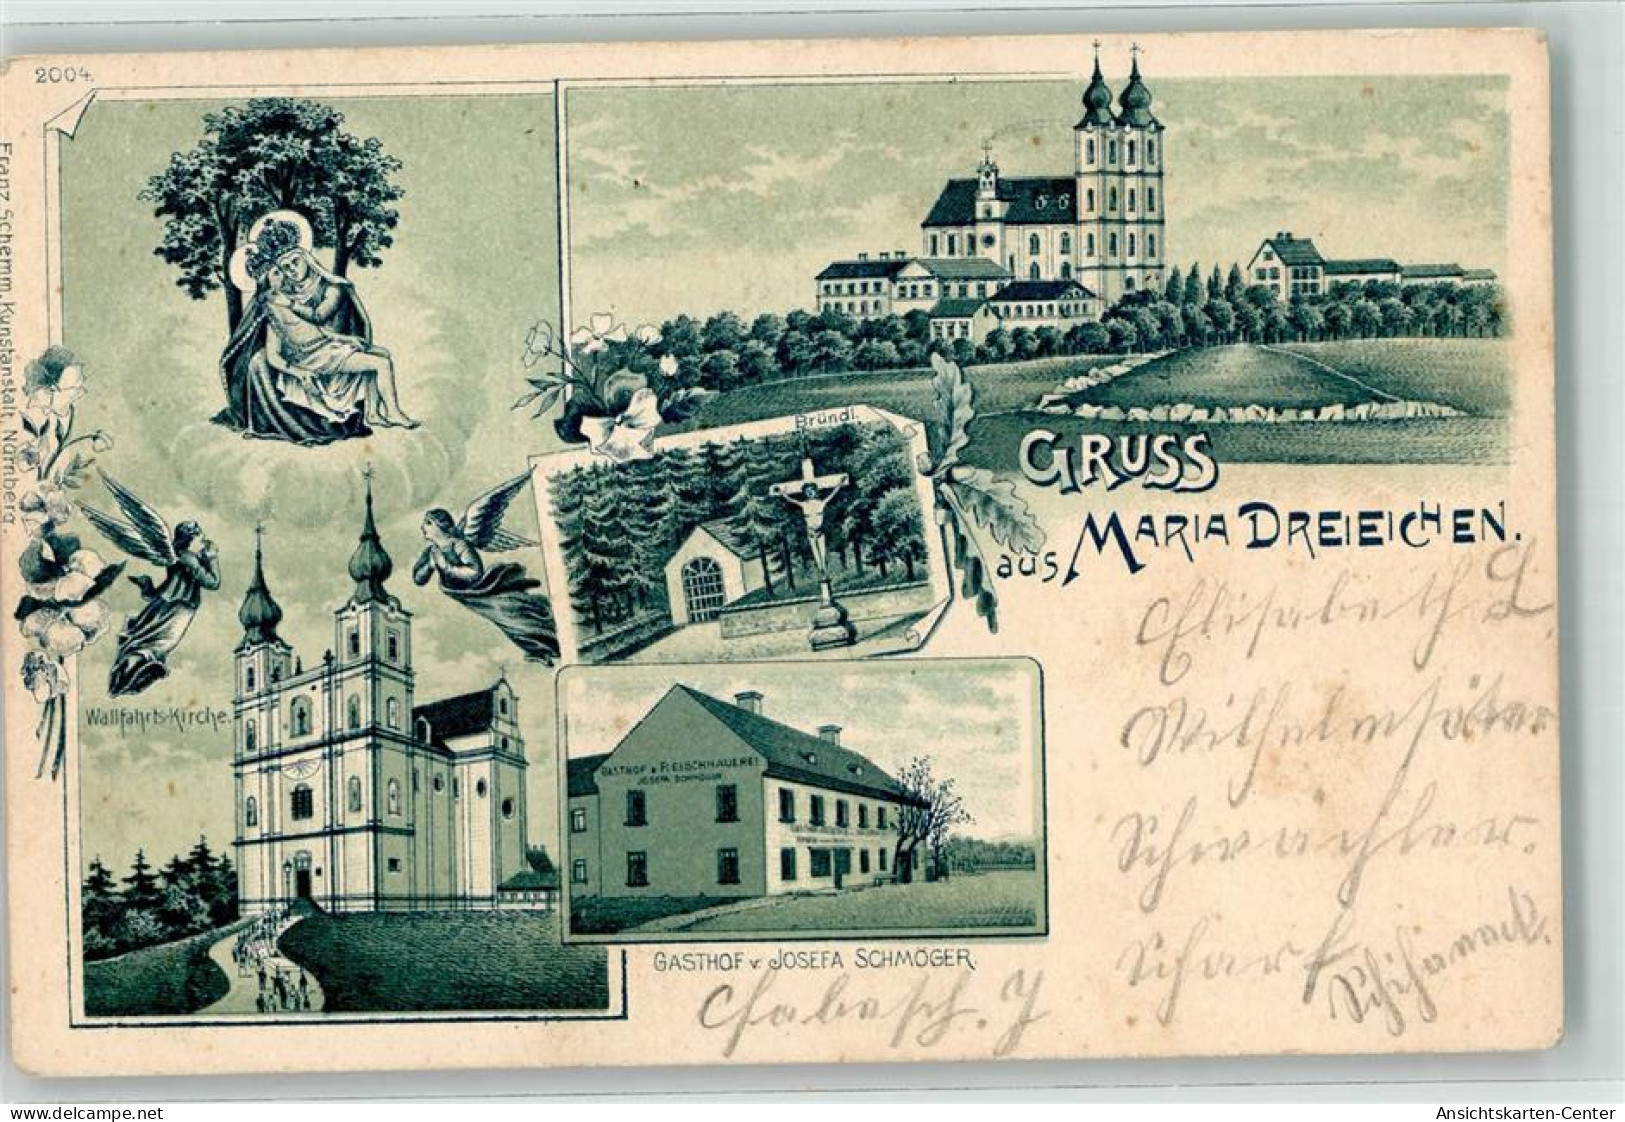 2004.
Franz Schemm, Kunstanstalt, Nürnberg.
Bründl.
GRUSS
aus MARIA DREIEICHEN.
Wallfahrts-Kirche.
GASTHOF u. FLEISCHHAUEREI
JOSEFA SCHMÖGER
GASTHOF v. JOSEFA SCHMÖGER.
Elisabeth
Schwachler.
Scharf
delcampe.net
Ansichtskarten-Center